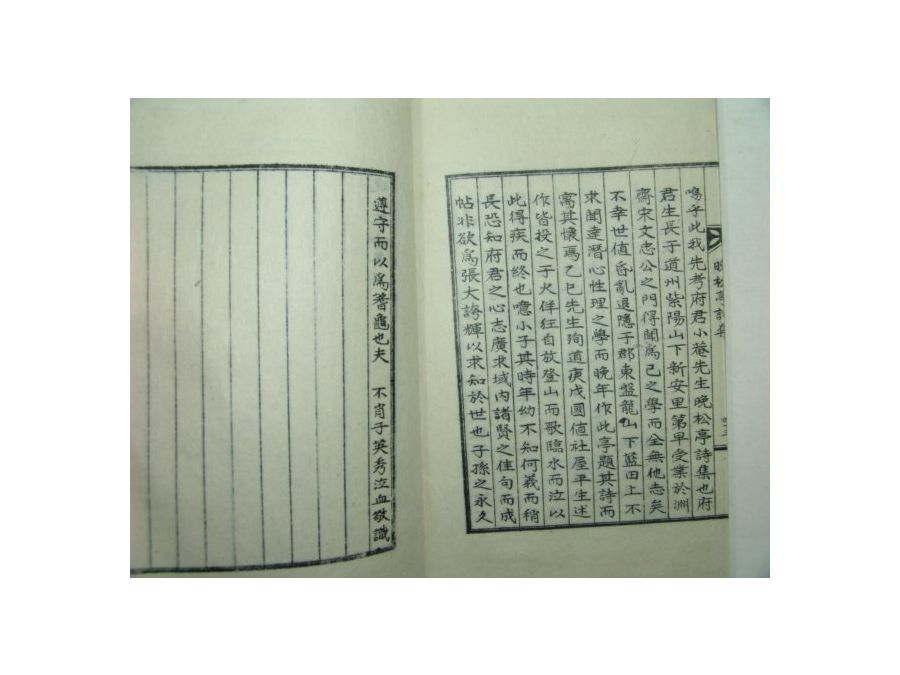 晩松亭詩集
嗚乎此我先考府君小菴先生晩松亭詩集也府
君生長于道州紫陽山下新安里第早受業於淵
齋宋文忠公之門得聞爲己之學而全無他志矣
不幸世値昏亂退隱于郡東盤龍山下藍田上不
求聞達潛心性理之學而晩年作此亭題其詩而
寓其懷焉乙巳先生殉道庚戌國値社屋平生述
作皆投之于火佯狂自放登山而歌臨水而泣以
此得疾而終也噫小子其時年幼不知何義而稍
長恐知府君之心志廣求域內諸賢之佳句而成
帖非欲爲張大誨輝以求知於世也子孫之永久
遵守而以爲蓍龜也夫　不肖子英秀泣血敬識